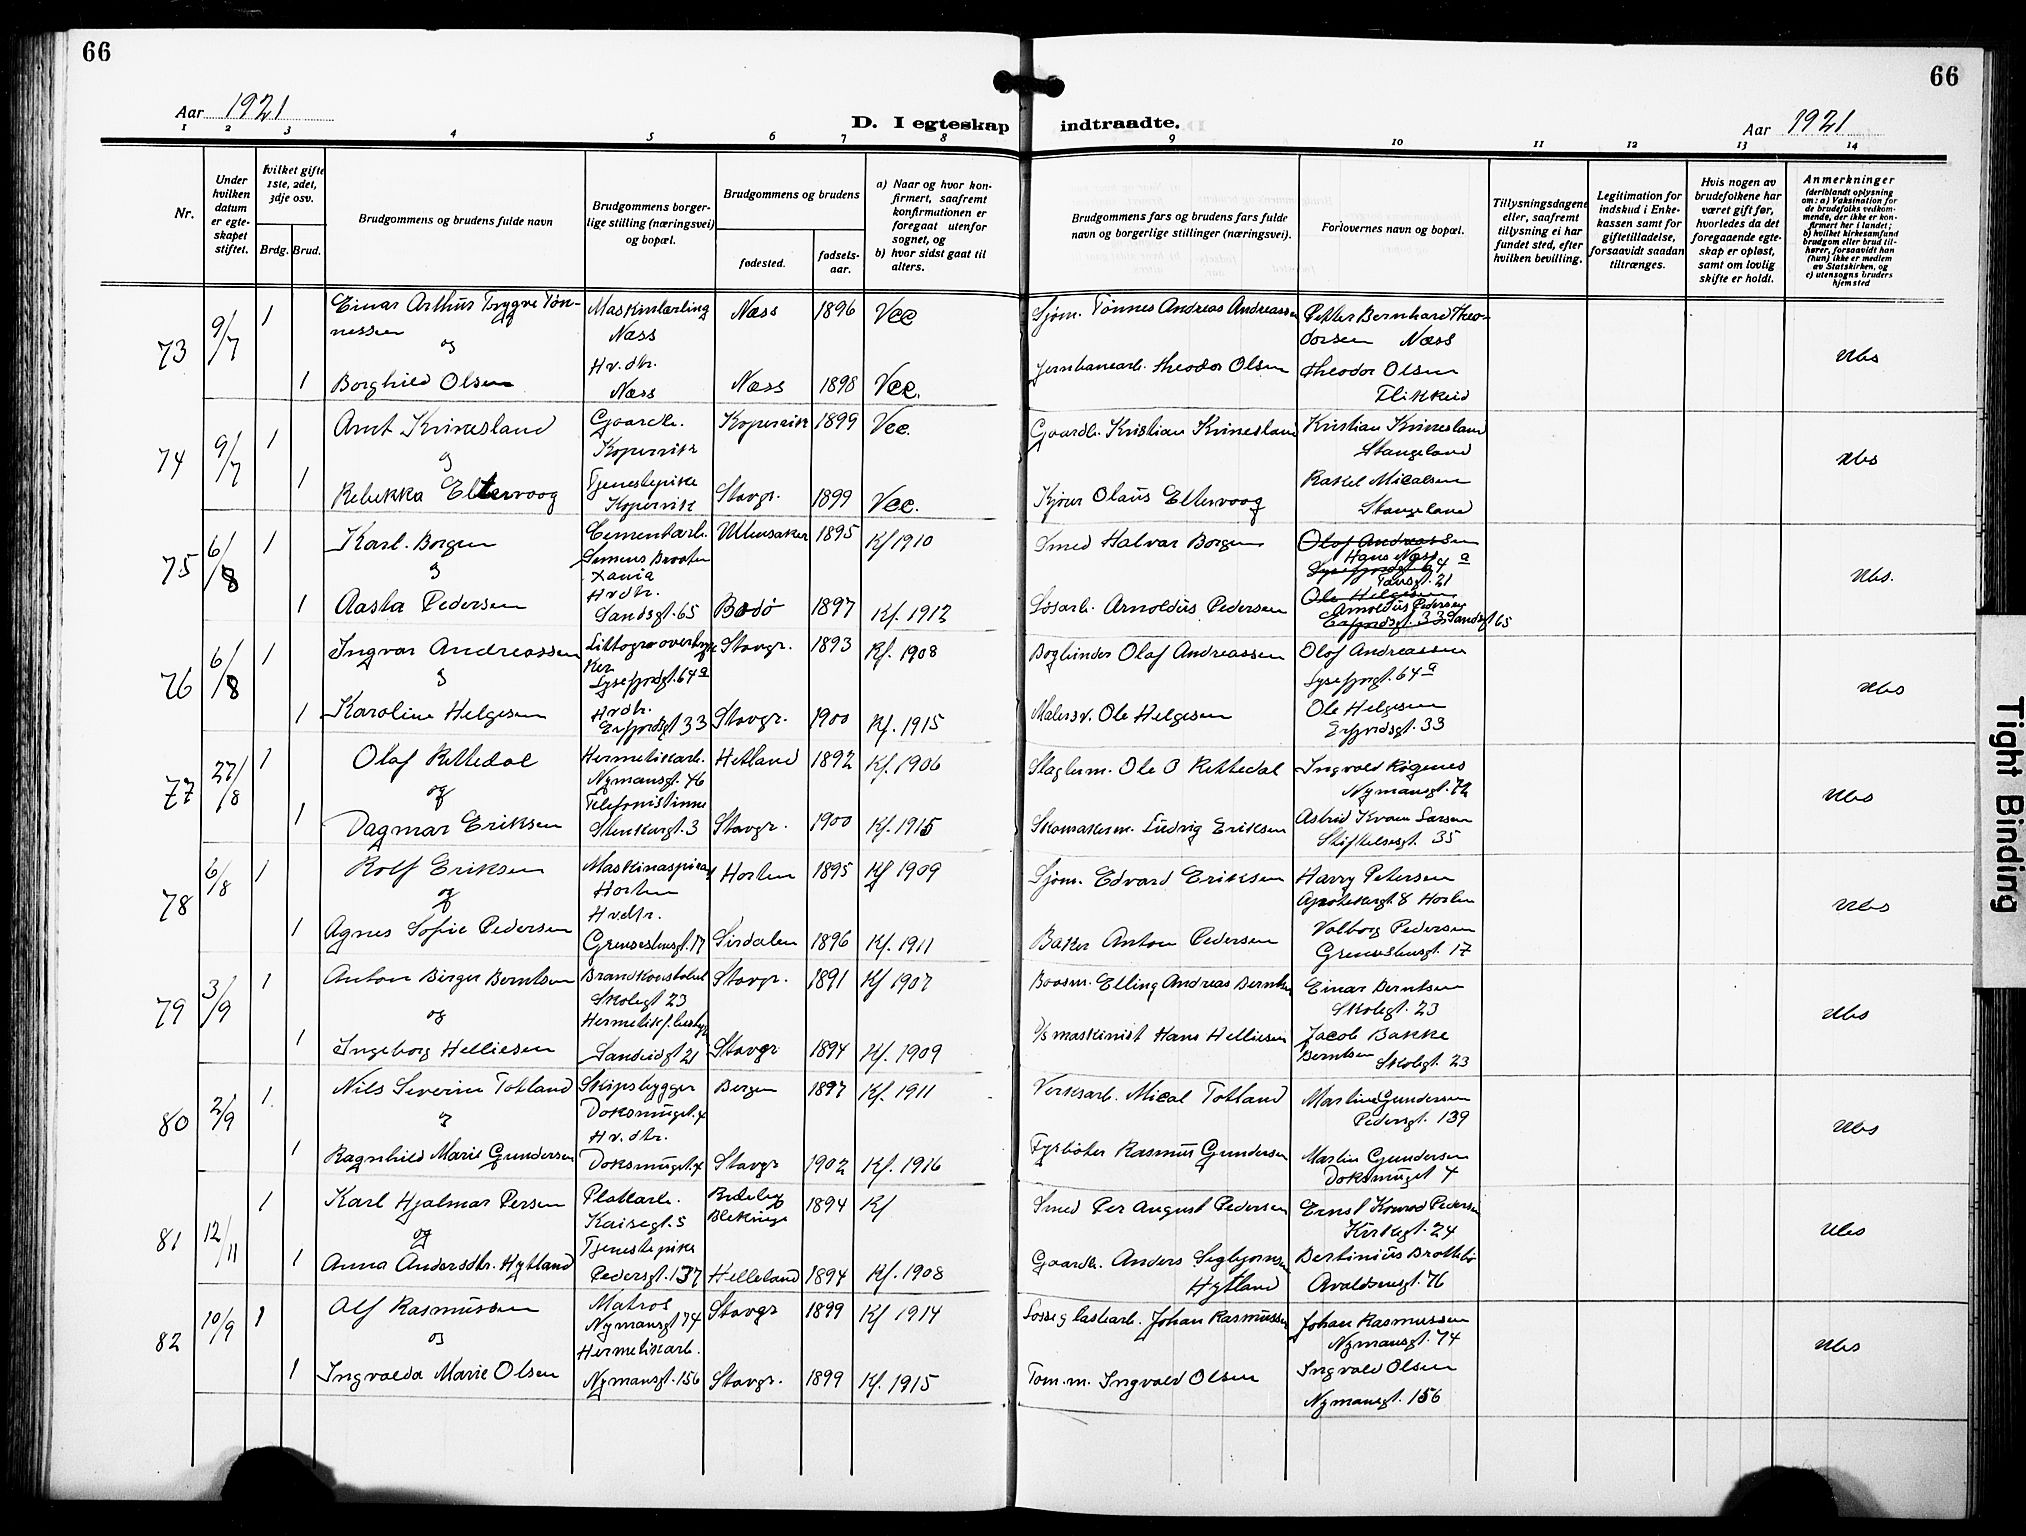 66
66
Aar 1921
D. I egteskap indtraadte.
Aar 1921
1 2 3 4 5 6 7 8 9 10 11 12 13 14
Nr.
Under hvilken datum er egteskapet stiftet.
hvilket gifte 1ste, 2det, 3dje osv.
Brdg. Brud.
Brudgommens og brudens fulde navn
Brudgommens borgerlige stilling (næringsvei) og bopæl.
Brudgommens og brudens
fødested.
fødselsaar.
a) Naar og hvor konfirmert, saafremt konfirmationen er foregaat utenfor sognet, og
b) hvor sidst gaat til alters.
Brudgommens fars og brudens fars fulde navn og borgerlige stillinger (næringsvei).
Forlovernes navn og bopæl.
Tillysningsdagene eller, saafremt tillysning ei har fundet sted, efter hvilken bevilling.
Legitimation for indskud i Enkekassen samt for giftetilladelse, forsaavidt saadan tiltrænges.
Hvis nogen av brudefolkene har været gift før, hvorledes da det foregaaende egteskap er opløst, samt om lovlig skifte er holdt.
Anmerkninger
(deriblandt oplysning om: a) Vaksination for de brudefolks vedkommende, der ikke er konfirmert her i landet; b) hvilket kirkesamfund brudgom eller brud tilhører, forsaavidt han (hun) ikke er medlem av Statskirken, og c) utensogns bruders hjemsted
73 9/7 1 Einar Arthur Trygve Tønnessen Maskinlærling Næss Næss 1896 Vee Sjøm. Tønnes Andreas Andreassen Petter Bernhard Theodorsen Næss
og
1 Borghild Olsen Hv.dtr. Næss Næss 1898 Vee. Jernbanearb. Theodor Olsen Theodor Olsen Flikkeid
74 9/7 1 Arnt Kvinesland Gaardb. Kopervik Kopervik 1899 Vee. Gaardb. Kristian Kvinesland Kristian Kvinesland Stangeland
og
1 Rebekka Eltervaag Tjenestepike Kopervik Stavgr. 1899 Vee. Kjører Olaus Eltervaag Rakel Micalsen Stangeland
75 6/8 1 Karl Borgen Cementarb. Ullensaker 1895 Kf 1910 Smed Halvar Borgen Olaf Andreassen Hans Næss Lysefjordgt. 64 a Tansgt. 21
og
1 Aasta Pedersen Hvdtr. Sandsgt. 65 Bodø 1897 Kf. 1912 Løsarb. Arnoldus Pedersen Ole Helgesen Arnoldus Pedersen Erfjordsgt. 33 Sandsgt 65
76 6/8 1 Ingvar Andreassen Lysefjordgt. 64 a Stavgr. 1893 Kf. 1908 Bogbinder Olaf Andreassen Olaf Andreassen Lysefjorgt. 64 a
og
1 Karoline Helgesen Hvdtr. Erfjordsgt 33 Stavgr. 1900 Kf. 1915 Malersv. Ole Helgesen Ole Helgesen Erfjordsgt. 33
77 27/8 1 Olaf Rettedal Hermetikarb. Nymansgt. 76 Hetland 1892 Kf. 1906 Ole O Rettedal Ingvald Røgenes Nymansgt. 72
og
1 Dagmar Eriksen Telefonistinne Stenkargt. 3 Stavgr. 1900 Kf. 1915 Skomakerm. Ludvig Eriksen Astrid Kvam Larsen Stiftelsesgt. 35
78 6/8 1 Rolf Eriksen Maskinaspirant Horten Horten 1895 Kf 1909 Sjøm. Edvard Eriksen Harry Petersen Apotekergt. 8 Horten
og
1 Agnes Sofie Pedersen Hvdtr. Grensehusgt. 17 Sirdalen 1896 Kf. 1911 Baker Anton Pedersen Valborg Pedersen Grensehusgt. 17
79 3/9 1 Anton Birger Berntsen Brandkonstabel Skolegt 23 Stavgr. 1891 Kf 1907 Elling Andreas Berntsen Einar Berntsen Skolegt. 23
og
1 Ingeborg Helliesen Sandeidgt 21 Stavgr 1894 Kf. 1909 D/S maskinist Hans Helliesen Jacob Bakke Berntsen Skolegt. 23
80 2/9 1 Nils Severin Totland Skipsbygger Doksmuget. 4 Bergen 1897 Kf. 1911 Verksarb. Mical Totland Martine Gundersen Pedersgt. 139
og
1 Ragnhild Marie Gundersen Hv.dtr. Doksmuget. 4 Stavgr 1902 Kf. 1916 Fyrbøter Rasmus Gundersen Martin Gundersen Doksmuget 4
81 12/11 1 Karl Hjalmar Persen Platearb. Kaisegt. 5 Blekinge 1894 Kf Smed Per August Pedersen Ernst Konrad Pedersen Kirkegt. 24
og
1 Anna Andersdtr. Hytland Tjenestepike Pedersgt. 137 Helleland 1894 Kf. 1908 Gaardb. Anders Segbjørnsen Hytland Bertinius Brattebø Avaldsnesgt. 76
82 10/9 1 Alf Rasmussen Matros Nymansgt 74 Stavgr 1899 Kf 1914 Losse g lastearb. Johan Rasmussen Johan Rasmussen Nymansgt. 74
og
1 Ingvalda Marie Olsen Hermetikarb. Nymansgt. 156 Stavgr. 1899 Kf. 1915 Tom.m. Ingvald Olsen Ingvald Olsen Nymansgt. 156
Tight Binding